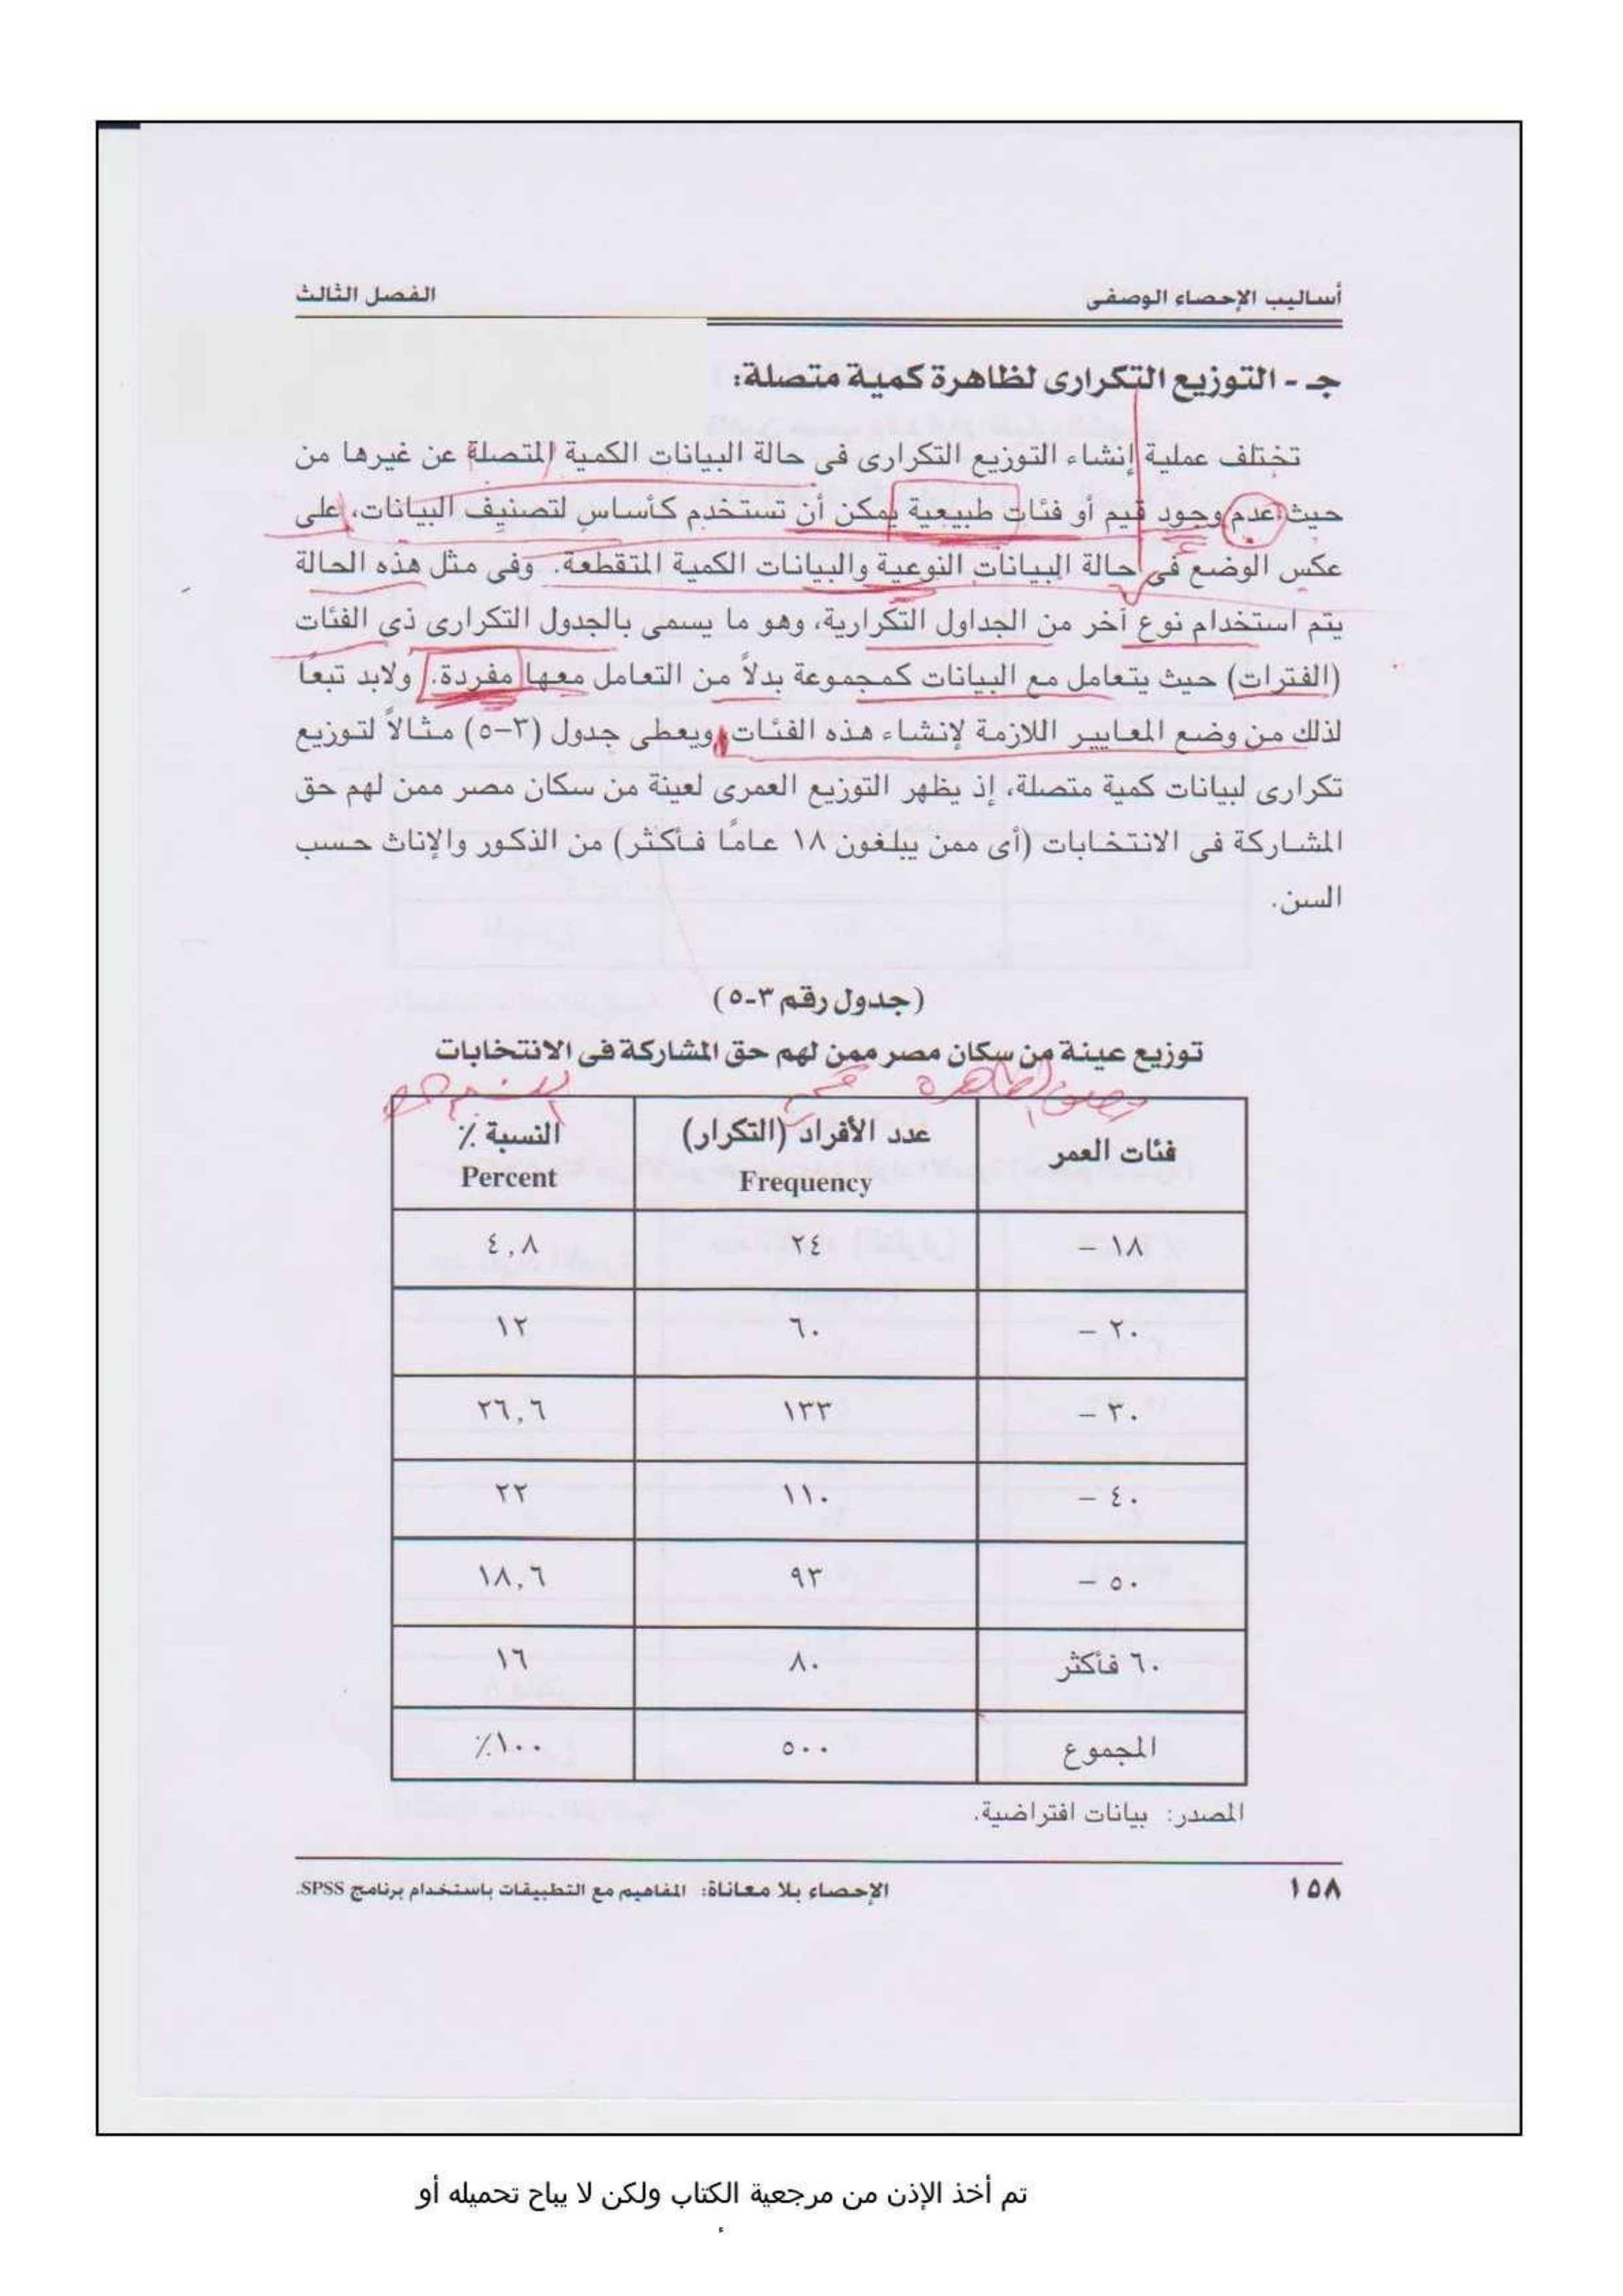 أساليب الإحصاء الوصفى
الفصل الثالث
جـ - التوزيع التكرارى لظاهرة كمية متصلة:
تختلف عملية إنشاء التوزيع التكرارى فى حالة البيانات الكمية المتصلة عن غيرها من
حيث عدم وجود قيم أو فئات طبيعية يمكن أن تستخدم كأساس لتصنيف البيانات، على
عكس الوضع فى حالة البيانات النوعية والبيانات الكمية المتقطعة. وفى مثل هذه الحالة
يتم استخدام نوع آخر من الجداول التكرارية، وهو ما يسمى بالجدول التكرارى ذى الفئات
(الفترات) حيث يتعامل مع البيانات كمجموعة بدلاً من التعامل معها مفردة. ولابد تبعًا
لذلك من وضع المعايير اللازمة لإنشاء هذه الفئات ويعطى جدول (٣-٥) مثالاً لتوزيع
تكرارى لبيانات كمية متصلة، إذ يظهر التوزيع العمرى لعينة من سكان مصر ممن لهم حق
المشاركة فى الانتخابات (أى ممن يبلغون ١٨ عامًا فأكثر) من الذكور والإناث حسب
السن.
(جدول رقم ٣-٥)
توزيع عينة من سكان مصر ممن لهم حق المشاركة فى الانتخابات
فئات العمر عدد الأفراد (التكرار) النسبة ٪
Frequency Percent
١٨ – ٢٤ ٤,٨
٢٠ – ٦٠ ١٢
٣٠ – ١٣٣ ٢٦,٦
٤٠ – ١١٠ ٢٢
٥٠ – ٩٣ ١٨,٦
٦٠ فأكثر ٨٠ ١٦
المجموع ٥٠٠ ١٠٠٪
المصدر: بيانات افتراضية.
١٥٨
الإحصاء بلا معاناة: المفاهيم مع التطبيقات باستخدام برنامج SPSS.
تم أخذ الإذن من مرجعية الكتاب ولكن لا يباح تحميله أو